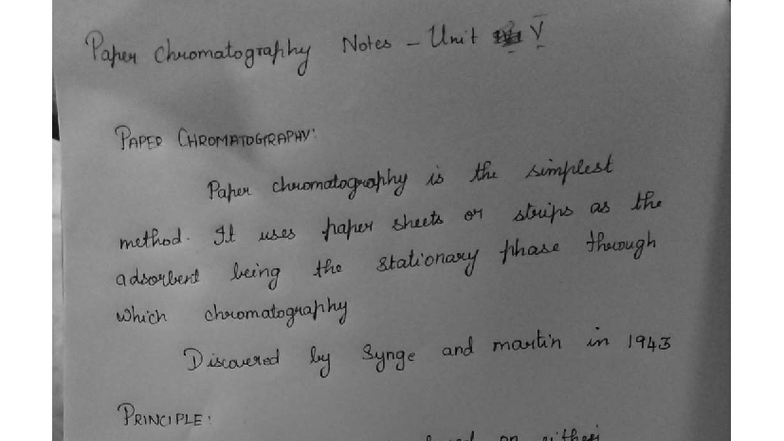 Paper Chromatography Notes - Unit V
PAPER CHROMATOGRAPHY:
Paper chromatography is the simplest
method. It uses paper sheets or strips as the
adsorbent being the stationary phase through
which chromatography
Discovered by Synge and martin in 1943
PRINCIPLE:
on either